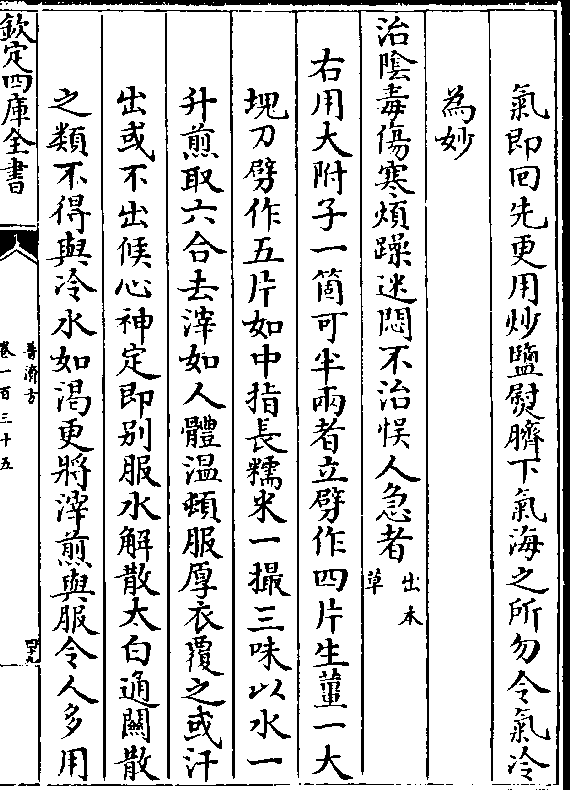 氣即回先更用炒鹽熨臍下氣海之所勿令氣冷
為妙
治陰毒傷寒煩躁迷悶不治悮人急者出本草
右用大附子一箇可半兩者立劈作四片生薑一大
塊刀劈作五片如中指長糯米一撮三味以水一
升煎取六合去滓如人體溫頓服厚衣覆之或汗
出或不出候心神定即别服水解散太白通關散
之類不得與冷水如渴更將滓煎與服令人多用
欽定四庫全書
普濟方
卷一百三十五
四十九